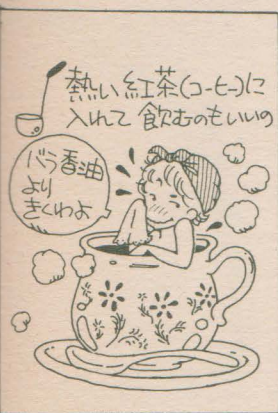 熱い紅茶(コーヒー)に
入れて飲むのもいいの
バラ香油
より
きくわよ